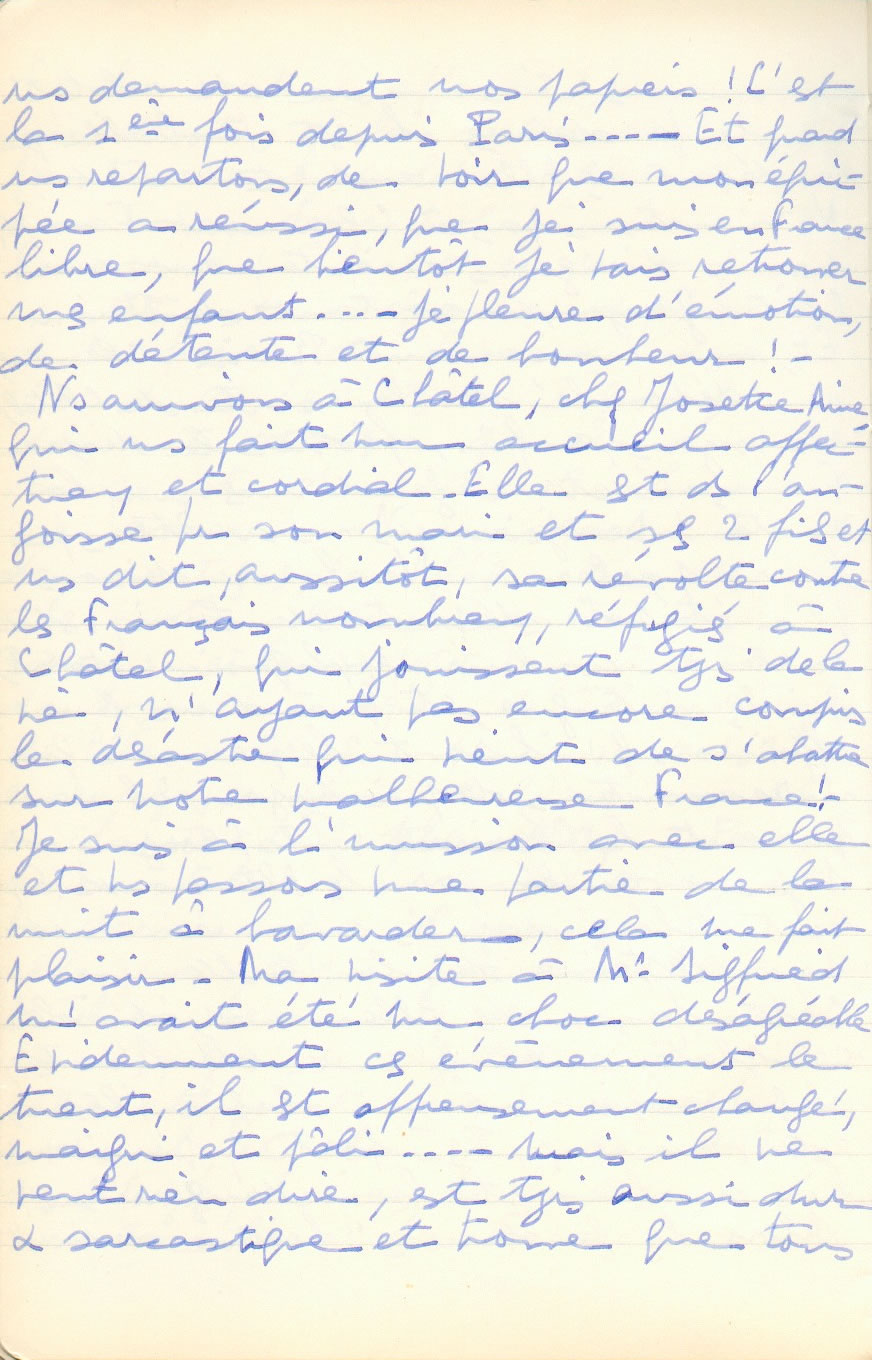 ns demandent nos papiers ! C'est
la 1ère fois depuis Paris ---- Et quand
ns repartons, de voir que mon équi-
pée a réussi, que je suis en France
libre, que bientôt je vais retrouver
mes enfants .... je pleure d'émotion,
de détente et de bonheur ! -
Ns arrivons à Châtel, chez Josette Aimé
qui ns fait un accueil affec-
tuex et cordial. Elle est ds l'an-
goisse pr son mari et ses 2 fils et
ns dit, aussitôt, sa révolte contre
les Français nombrex, réfugiés à
Châtel, qui jouissent tjs de la
vie, n'ayant pas encore compris
le désastre qui vient de s'abattre
sur notre malheureuse France ! -
Je suis à l'unisson avec elle
et ns passons une partie de la
nuit à bavarder, cela me fait
plaisir. Ma visite à Mr Sigfried
m'avait été un choc désagréable
Evidemment ces évènements le
tuent, il est affreusement changé,
maigri et pâli .... mais il ne
veut rien dire, est tjs aussi dur
& sarcastique et trouve que tous